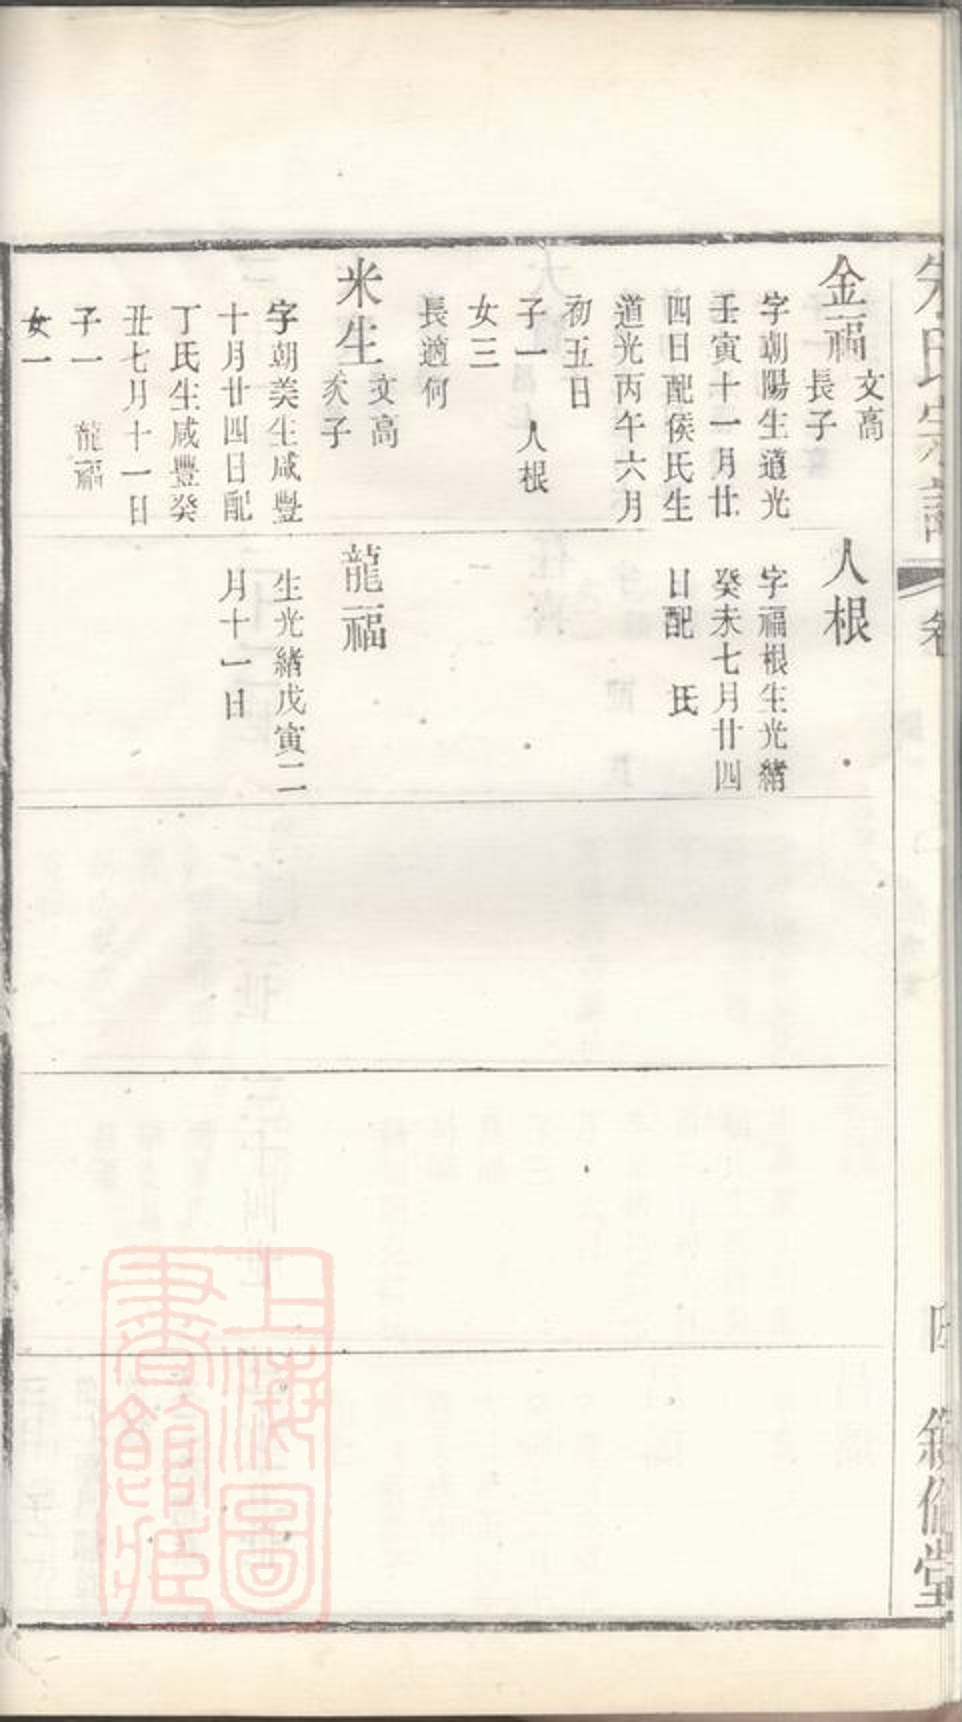 朱氏宗譜
卷
敘倫堂
金福 文高
長子
字朝陽生道光
壬寅十一月廿
四日配侯氏生
道光丙午六月
初五日
子一 人根
女三
長適何
米生 文高
次子
字朝美生咸豐
十月廿四日配
丁氏生咸豐癸
丑七月十一日
子一 龍福
女一
人根
字福根生光緒
癸未七月廿四
日配 氏
龍福
生光緒戊寅二
月十一日
上海圖
書館藏